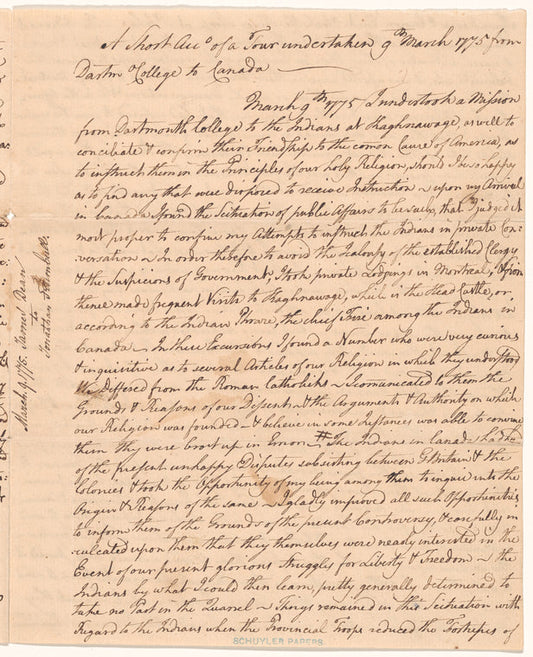 A Short Acct. of a Tour undertaken 9th March 1775 from
Dartm. College to Canada
March 9th 1775 I undertook a Mission
from Dartmouth College to the Indians at Kaghnawage, as well to
conciliate & confirm their Friendship to the comon Cause of America, as
to instruct them in the Principles of our holy Religion, should I be so happy
as to find any that were disposed to receive Instruction – upon my Arrival
in Canada I found the Scituation of public Affairs to be such, that I judged it
most proper to confine my Attempts to instruct the Indians in private Con-
versation – In order therefore to avoid the Jealousy of the established Clergy
& the Suspicions of Government, I took private Lodgings in Montreal, & from
thence made frequent Visits to Kaghnawage, which is the Head Castle, or,
according to the Indian Phrase, the chief Fire among the Indians in
Canada – In these Excursions I found a Number who were very curious
& inquisitive as to several Articles of our Religion in which they understood
we differed from the Roman Catholicks – I comunicated to them the
Grounds & Reasons of our Dissent & the Arguments & Authority on which
our Religion was founded – & believe in some Instances was able to convince
them they were brot up in Error – # The Indians in Canada had
of the present unhappy Disputes subsisting between G Britain & the
Colonies & took the Opportunity of my being among them to inquire into the
Origin & Reasons of the same – I gladly improved all such Opportunities
to inform them of the Grounds of the present Controversy, & carefully in
culcated upon them that they themselves were nearly interested in the
Event of our present glorious Struggles for Liberty & Freedom – the
Indians by what I could then learn, pretty generally determined to
take no Part in the Quarrel – Things remained in this Scituation with
Regard to the Indians when the Provincial Troops reduced the Fortresses of
March 9, 1775. James Dean
to
Jonathan Trumbull.
SCHUYLER PAPERS